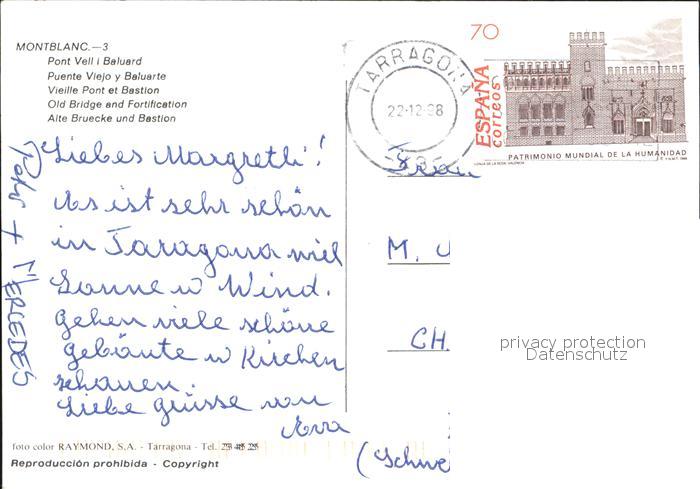 MONTBLANC.—3
Pont Vell i Baluard
Puente Viejo y Baluarte
Vieille Pont et Bastion
Old Bridge and Fortification
Alte Bruecke und Bastion
TARRAGONA
22-12-98
70
ESPAÑA
correos
PATRIMONIO MUNDIAL DE LA HUMANIDAD
LONJA DE LA SEDA. VALENCIA
Liebes Margretli!
Es ist sehr schön
in Taragona viel
Sonne u Wind.
Gehen viele schöne
gebäute u Kirchen
schauen.
Liebe grüsse von
+ MERCEDES
Frau
M. U
CH.
(Schwe
privacy protection
Datenschutz
foto color RAYMOND, S.A. - Tarragona - Tel.
Reproducción prohibida - Copyright